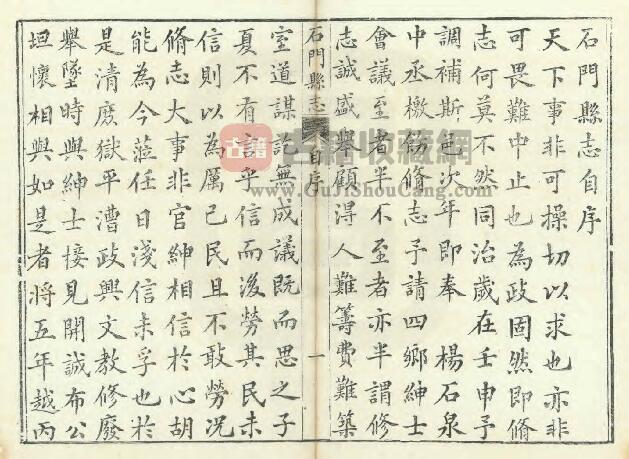 石門縣志自序
天下事非可操切以求也亦非
可畏難中止也為政固然即脩
志何莫不然同治歲在壬申予
調補斯邑次年即奉 楊石泉
中丞檄飭脩志予請四鄉紳士
會議至者半不至者亦半謂修
志誠盛舉顧得人難籌費難築
石門縣志 自序 一
室道謀訖無成議既而思之子
夏不有言乎信而後勞其民未
信則以為厲己民且不敢勞况
脩志大事非官紳相信於心胡
能為今蒞任日淺信未孚也於
是清庶獄平漕政興文教修廢
舉墜時與紳士接見開誠布公
坦懷相與如是者將五年越丙
古籍
古籍收藏網
www.GuJiShouCang.com